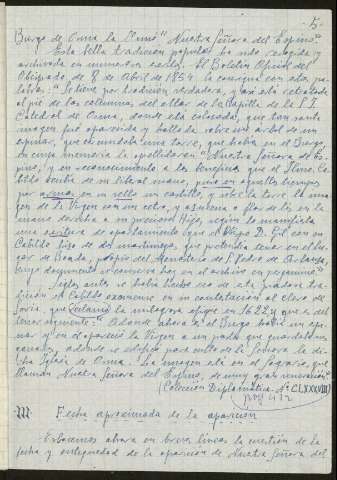 5.
Burgo de Osma la llamó "Nuestra Señora del Espino".
Esta bella tradición popular ha sido recogida y
archivada en numerosos escritos. El Boletín Oficial del
Obispado, de 8 de Abril de 1864 la consigna con estas pa-
labras: "Se tiene por tradición verdadera, y así está retratado
al pie de las columnas del altar de la Capilla de la S. I.
Catedral de Osma, donde está colocada, que tan santa
imagen fué aparecida y hallada sobre un árbol de un
espinar, que circundaba una torre, que había en el Burgo
en cuya memoria la apellidaron "Nuestra Señora de Es-
pino, y en reconocimiento a los beneficios que el Ilmo. Ca-
bildo recibía de su liberal mano, puso en aquellos tiempos
por armas en su sello un castillo y sobre la torre la ima-
gen de la Virgen con un cetro, y azucena o flor de lis en la
mano derecha a su precioso Hijo, según lo manifiesta
una escritura de apartamiento que el Obispo D. Gil con su
Cabildo hizo de dos martiniegas, que pretendía tener en el lu-
gar de Boada, propio del Monasterio de S. Pedro de Arlanza,
cuyo documento se conserva hoy en el archivo en pergamino".
Siglos antes se había hecho eco de esta piadosa tra-
dición el Cabildo oxomense en su contestación al clero de
Soria, que pedía la milagrosa efigie en 1622 y que es del
tenor siguiente: "A donde ahora es el Burgo había un espi-
nar y en él apareció la Virgen a un pastor que guardaba su
ganado, adonde se edificó para culto de la Señora la di-
cha Iglesia de Osma. La imagen está en el Sagrario, que
llaman Nuestra Señora del Espino, de muy gran veneración".
(Colección Diplomática. Nº CLXXXVIII)
pag 412
III Fecha aproximada de la aparición
Esbocemos ahora en breves líneas la cuestión de la
fecha y antigüedad de la aparición de Nuestra Señora del